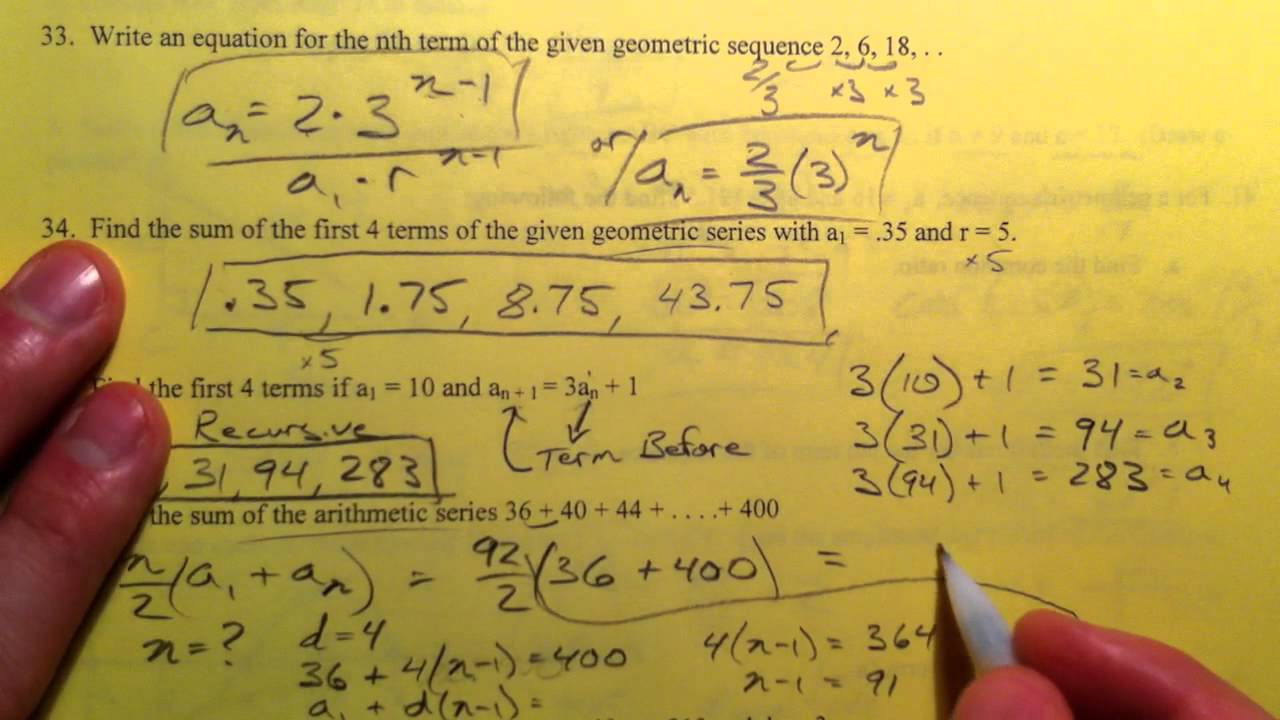 33. Write an equation for the nth term of the given geometric sequence 2, 6, 18, . .
2/3 ×3 ×3
aₙ = 2 · 3ⁿ⁻¹
a₁ · rⁿ⁻¹
or aₙ = 2/3 (3)ⁿ
34. Find the sum of the first 4 terms of the given geometric series with a₁ = .35 and r = 5.
×5
.35, 1.75, 8.75, 43.75
×5
the first 4 terms if a₁ = 10 and aₙ₊₁ = 3aₙ + 1
3(10) + 1 = 31 = a₂
Recursive
Term Before
3(31) + 1 = 94 = a₃
, 31, 94, 283
3(94) + 1 = 283 = a₄
the sum of the arithmetic series 36 + 40 + 44 + . . . .+ 400
n/2 (a₁ + aₙ) = 92/2 (36 + 400) =
n = ? d = 4
4(n-1) = 364
36 + 4(n-1) = 400
n-1 = 91
a₁ + d(n-1) =